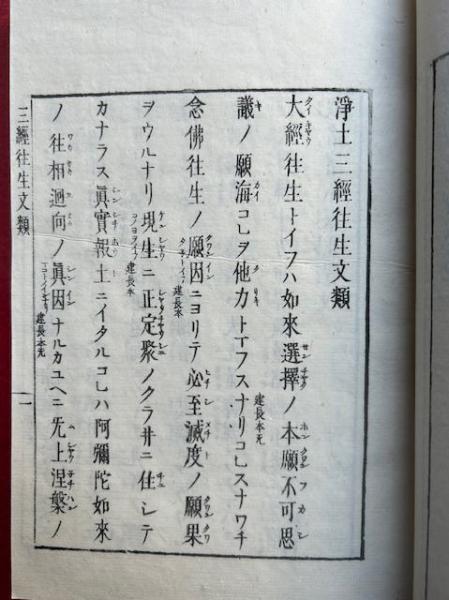 淨土三經往生文類
大經往生トイフハ如來選擇ノ本願不可思
議ノ願海コレヲ他力トマフスナリコレスナワチ
念佛往生ノ願因ニヨリテ必至滅度ノ願果
ヲウルナリ現生ニ正定聚ノクラ井ニ住シテ
カナラス眞實報土ニイタルコレハ阿彌陀如來
ノ往相迴向ノ眞因ナルカユヘニ无上涅槃ノ
三經往生文類
一